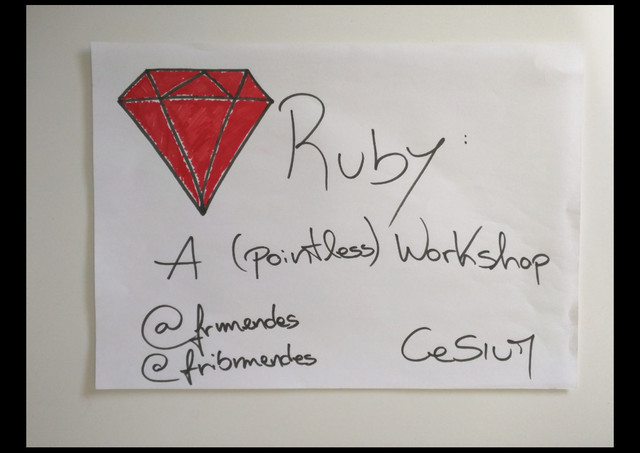 Ruby:
A (pointless) Workshop
@frmendes
@fribrmendes
CeSIUM